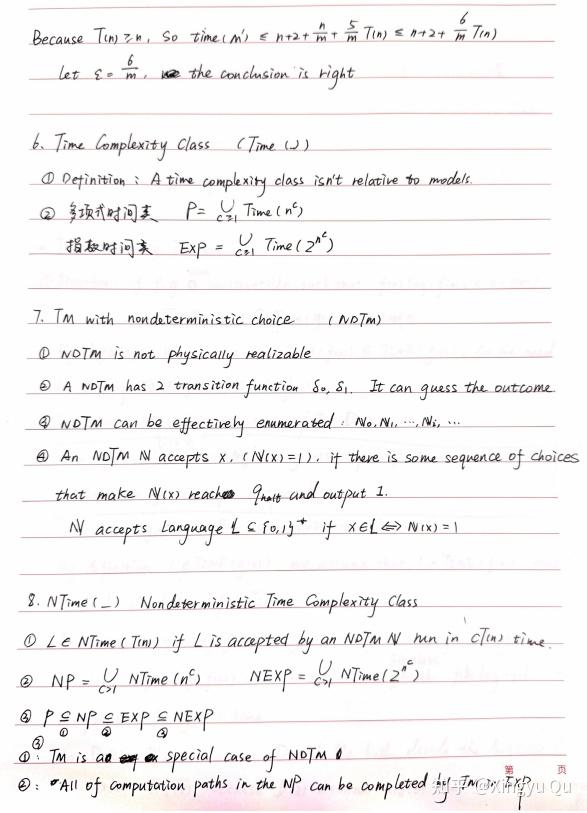 Because T(n) ≥ n, So time(M') ≤ n+2+ n/m + 5/m T(n) ≤ n+2+ 6/m T(n)
Let ε = 6/m, the conclusion is right
6、Time Complexity Class (Time(_))
① Definition: A time complexity class isn't relative to models.
② 多项式时间类 P = ∪_{c≥1} Time(n^c)
指数时间类 EXP = ∪_{c≥1} Time(2^{n^c})
7. TM with nondeterministic choice (NDTM)
① NDTM is not physically realizable
② A NDTM has 2 transition function δ₀, δ₁. It can guess the outcome
③ NDTM can be effectively enumerated: N₀, N₁, ..., Nᵢ, ...
④ An NDTM N accepts x, (N(x)=1), if there is some sequence of choices
that make N(x) reach q_halt and output 1.
N accepts Language L ⊆ {0,1}* if x∈L ⇔ N(x)=1
8. NTime(_) Nondeterministic Time Complexity Class
① L ∈ NTime(T(n)) if L is accepted by an NDTM N run in cT(n) time.
② NP = ∪_{c>1} NTime(n^c) NEXP = ∪_{c>1} NTime(2^{n^c})
③ P ⊆ NP ⊆ EXP ⊆ NEXP
① ② ③
③
①: TM is a special case of NDTM
第 页
②: All of computation paths in the NP can be completed by TM in EXP
知乎 @Xingyu Qu